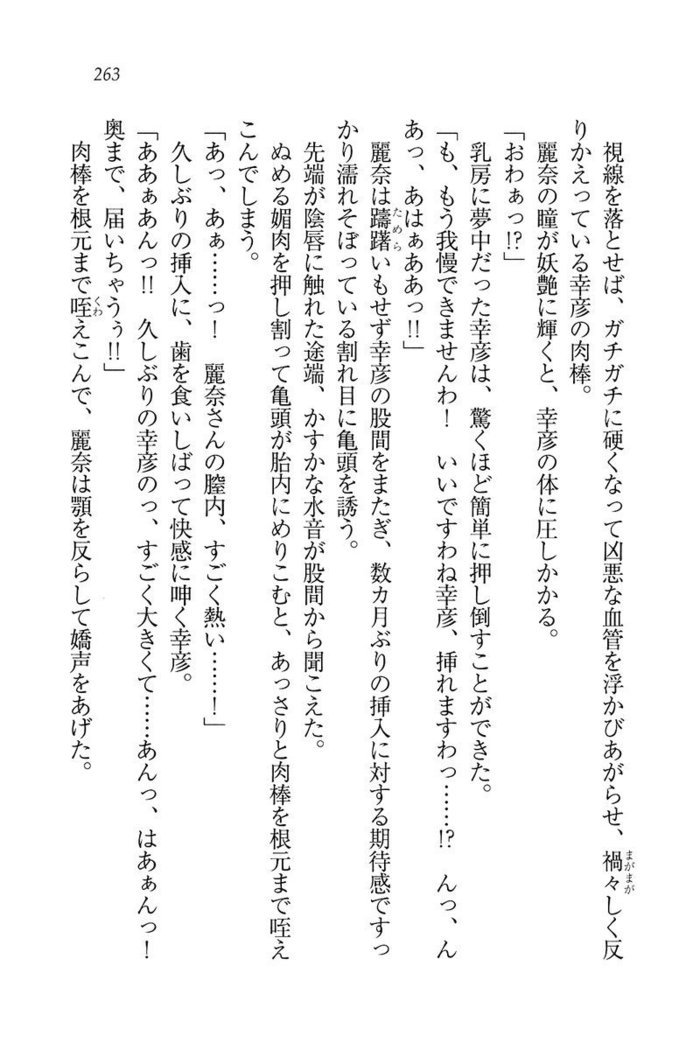 263
視線を落とせば、ガチガチに硬くなって凶悪な血管を浮かびあがらせ、禍々しく反
りかえっている幸彦の肉棒。
麗奈の瞳が妖艶に輝くと、幸彦の体に圧しかかる。
「おわぁっ!?」
乳房に夢中だった幸彦は、驚くほど簡単に押し倒すことができた。
「も、もう我慢できませんわ！　いいですわね幸彦、挿れますわっ……!?　んっ、ん
あっ、あはぁああっ!!」
麗奈は躊躇いもせず幸彦の股間をまたぎ、数カ月ぶりの挿入に対する期待感ですっ
かり濡れそぼっている割れ目に亀頭を誘う。
先端が陰唇に触れた途端、かすかな水音が股間から聞こえた。
ぬめる媚肉を押し割って亀頭が胎内にめりこむと、あっさりと肉棒を根元まで咥え
こんでしまう。
「あっ、あぁ……っ！　麗奈さんの膣内、すごく熱い……！」
久しぶりの挿入に、歯を食いしばって快感に呻く幸彦。
「ああぁあんっ!!　久しぶりの幸彦のっ、すごく大きくて……あんっ、はあぁんっ！
奥まで、届いちゃうぅ!!」
肉棒を根元まで咥えこんで、麗奈は顎を反らして嬌声をあげた。